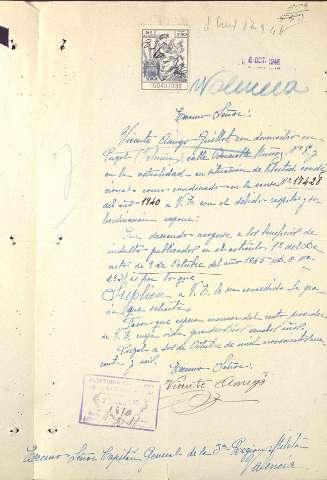 6 OCT. 1946
Valencia
Excmo Señor:
Vicente Amigo Guillot con domicilio en
Puzol (Valencia) calle Muñoz Nº 87
en la actualidad en situacion de libertad condi
cional como condenado en la causa Nº 17428
del año 1940 a V.E. con el debido respeto y su
bordinacion expone:
Que deseando acogerse a los beneficios de
indulto publicados en el articulo 1º del De
creto de 9 de Octubre del año 1945
es por lo que
Suplica a V.E. le sea concedida la gra
cia que solicita
Favor que espera merecer del recto proceder
de V.E. cuya vida guarde Dios muchos años.
Puzol a dos de Octubre de mil novecientos cua
renta y seis.
Excmo Señor:
Vicente Amigó
Excmo Señor Capitán General de la 3ª Region Militar
Valencia